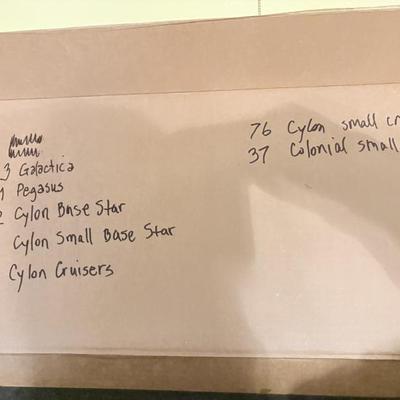 3 Galactica
Pegasus
Cylon Base Star
Cylon Small Base Star
Cylon Cruisers
76 Cylon small
37 Colonial small